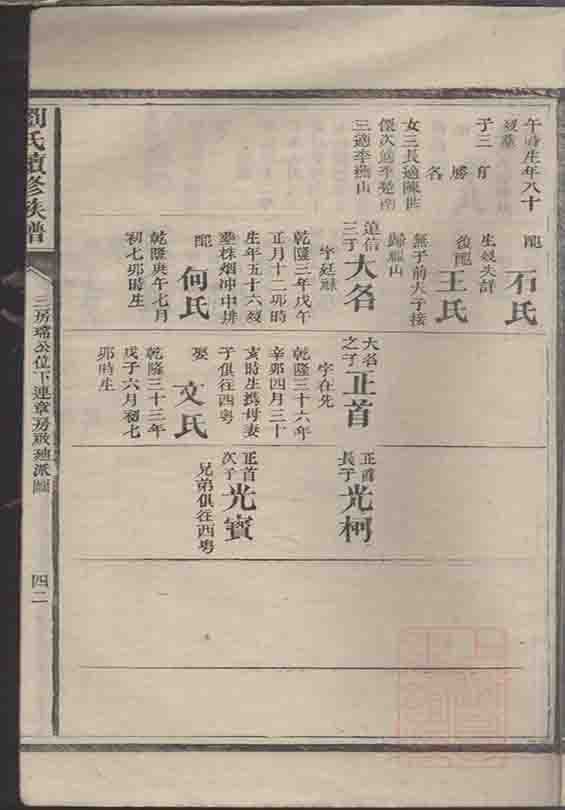 午時生年八十
歿葬
子三
名
勝
女三長適陳世
儇次適李楚南
三適李燕山
配
石氏
生歿失詳
王氏
後配
無子前夫子接
歸
山
道信
三子
大名
字廷
乾隆三年戊午
正月十二卯時
生年五十六歿
葬株烟冲中排
配
何氏
乾隆庚午七月
初七卯時生
大名
之子
正首
字在先
乾隆三十六年
辛卯四月三十
亥時生携母妻
子俱往西粵
娶
文氏
乾隆三十三年
戊子六月初七
卯時生
正首
長子
光柯
正首
次子
光賓
兄弟俱往西粵
劉氏續修族譜
三房常公位下連章房啟廸派圖
四二